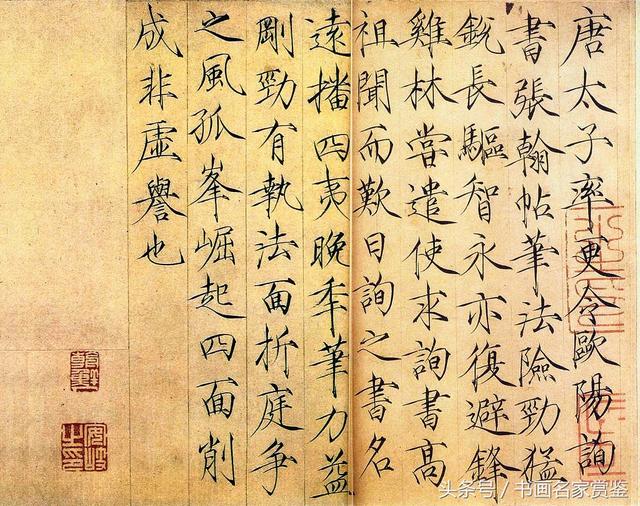 唐太子率更令歐陽詢
書張翰帖筆法險勁猛
銳長驅智永亦復避鋒
雞林嘗遣使求詢書高
祖聞而歎曰詢之書名
遠播四夷晚年筆力益
剛勁有執法面折庭爭
之風孤峯崛起四面削
成非虛譽也
头条号/书画名家赏鉴